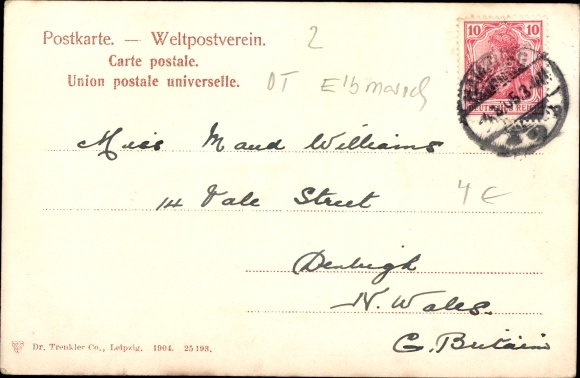 Postkarte. — Weltpostverein.
Carte postale.
Union postale universelle.
2
DT Elbmarsch
10 10
DEUTSCHES REICH
Miss Maud Williams
14 Vale Street
4 €
Denbigh
N. Wales.
G. Britain
Dr. Trenkler Co., Leipzig. 1904. 25 193.